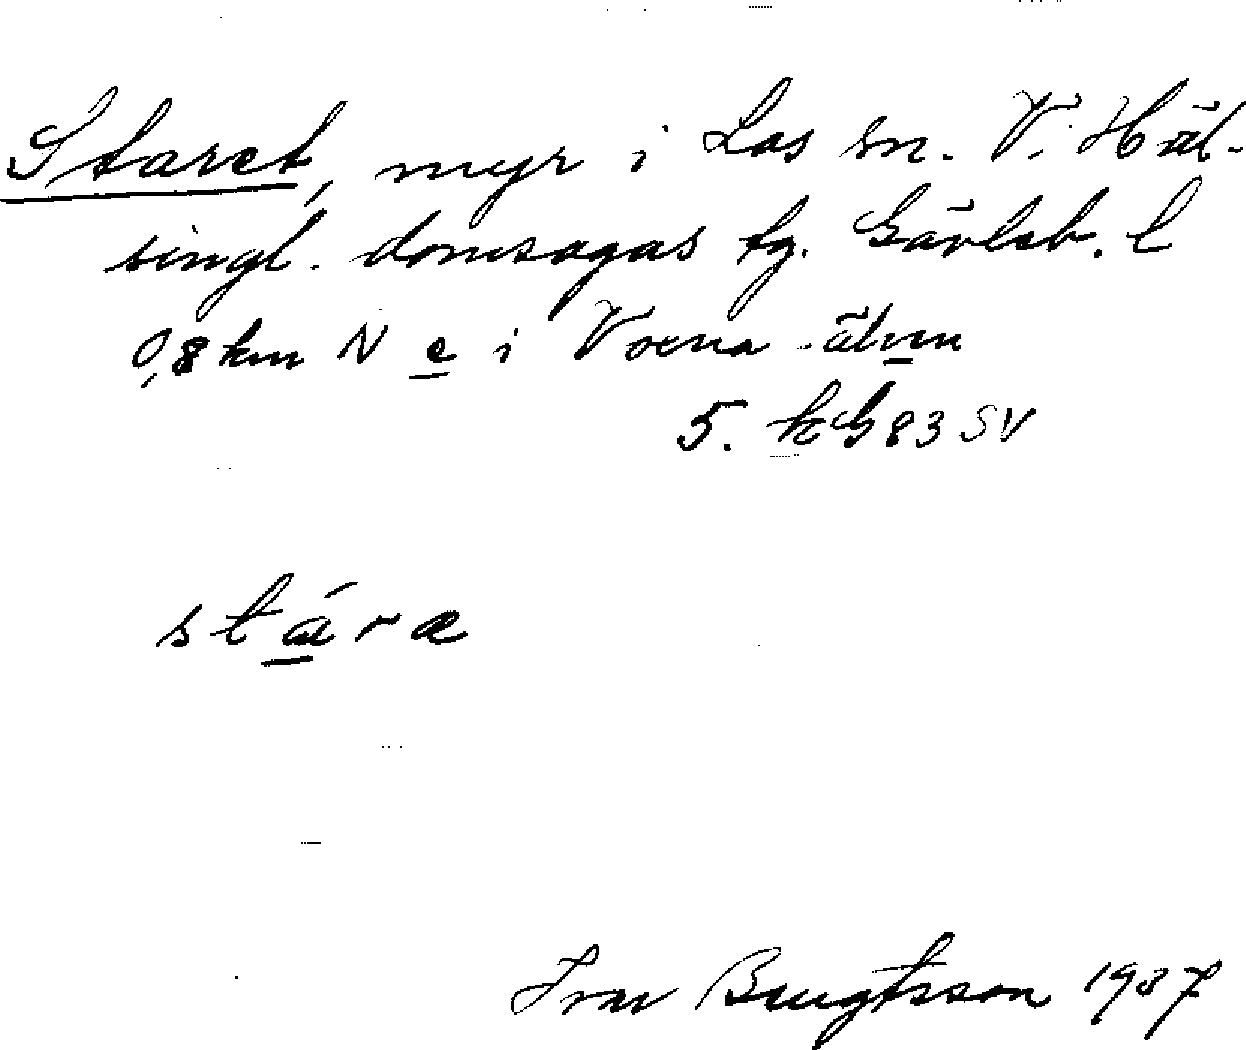 Staret, myr i Los sn. V. Häl-
singl. domsagas tg. Gävleb. l
0,8 km N e i Voxna älven
5. kG 83 SV
stára
Ivar Bengtsson 1937